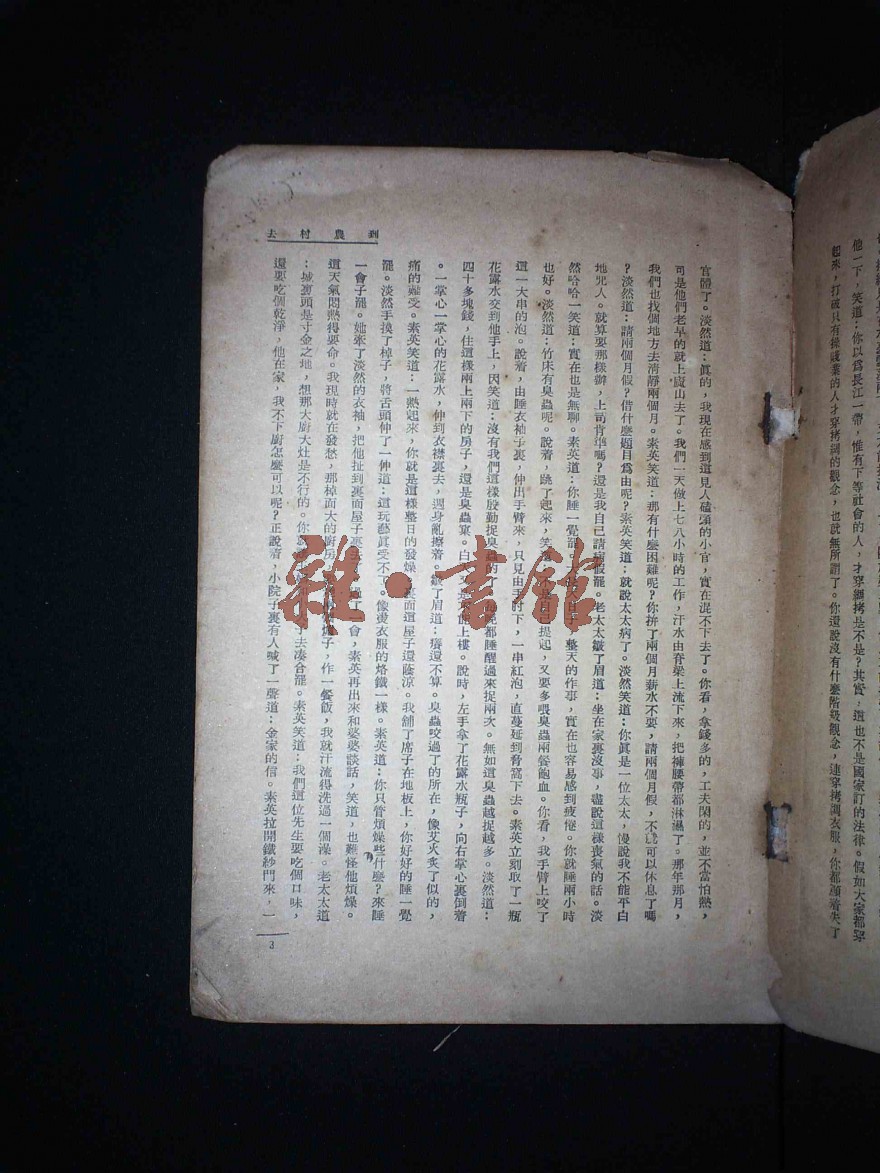 起來，打破只有操賤業的人才穿拷綢的觀念，也就無所謂了。你還說沒有什麼階級觀念，連穿拷綢衣服，你都顧着失了
他一下，笑道：你以爲長江一帶，惟有下等社會的人，才穿綢拷是不是？其實，這也不是國家訂的法律。假如大家都穿
官體了。淡然道：眞的，我現在感到這見人磕頭的小官，實在混不下去了。你看，拿錢多的，工夫閑的，並不當怕熱，
可是他們老早的就上廬山去了。我們一天做上七八小時的工作，汗水由脊梁上流下來，把褲腰帶都淋濕了。那年那月，
我們也找個地方去清靜兩個月。素英笑道：那有什麼困難呢？你拚了兩個月薪水不要，請兩個月假，不就可以休息了嗎
？淡然道：請兩個月假？借什麼題目爲由呢？素英笑道：就說太太病了。淡然笑道：你眞是一位太太，慢說我不能平白
地咒人。就算要那樣辦，上司肯準嗎？還是我自己請病假罷。老太太皺了眉道：坐在家裏沒事，盡說這樣喪氣的話。淡
然哈哈一笑道：實在也是無聊。素英道：你睡一覺罷，整天的作事，實在也容易感到疲倦。你就睡兩小時
也好。淡然道：竹床有臭蟲呢。說着，跳了起來，笑道：提起，又要多喂臭蟲兩餐飽血。你看。我手臂上咬了
這一大串的泡。說着，由睡衣袖子裏，伸出手臂來，只見由手肘下，一串紅泡，直蔓延到脅窩下去。素英立刻取了一瓶
花露水交到他手上，因笑道：沒有我們這樣殷勤捉臭蟲的了，都睡醒過來捉兩次。無如這臭蟲越捉越多。淡然道：
四十多塊錢，住這樣兩上兩下的房子，還是臭蟲窠。上樓。說時，左手拿了花露水瓶子，向右掌心裏倒着
。一掌心一掌心的花露水，伸到衣襟裏去，週身亂擦着。皺了眉道：癢還不算。臭蟲咬過了的所在，像艾火炙了似的，
痛的難受。素英笑道：一熱起來，你就是這樣整日的發燥。裏面這屋子還蔭涼。我舖了席子在地板上，你好好的睡一覺
罷。淡然手摸了棹子，將舌頭伸了一伸道：這玩藝眞受不了。像燙衣服的烙鐵一樣。素英道：你只管煩燥些什麼？來睡
一會子罷。她牽了淡然的衣袖，把他扯到裏面屋子裏去了。過了一會，素英再出來和婆婆談話，笑道，也難怪他煩燥。
這天氣悶熱得要命。我現時就在發愁，那棹面大的廚房，作一餐飯，我就汗流得洗過一個澡。老太太道
：城裏頭是寸金之地，想那大廚大灶是不行的。你去湊合罷。素英笑道：我們這位先生要吃個口味，
還要吃個乾淨，他在家，我不下廚怎麼可以呢？正說着，小院子裏有人喊了一聲道：金家的信。素英拉開鐵紗門來，一
到農村去
3
雜·書館